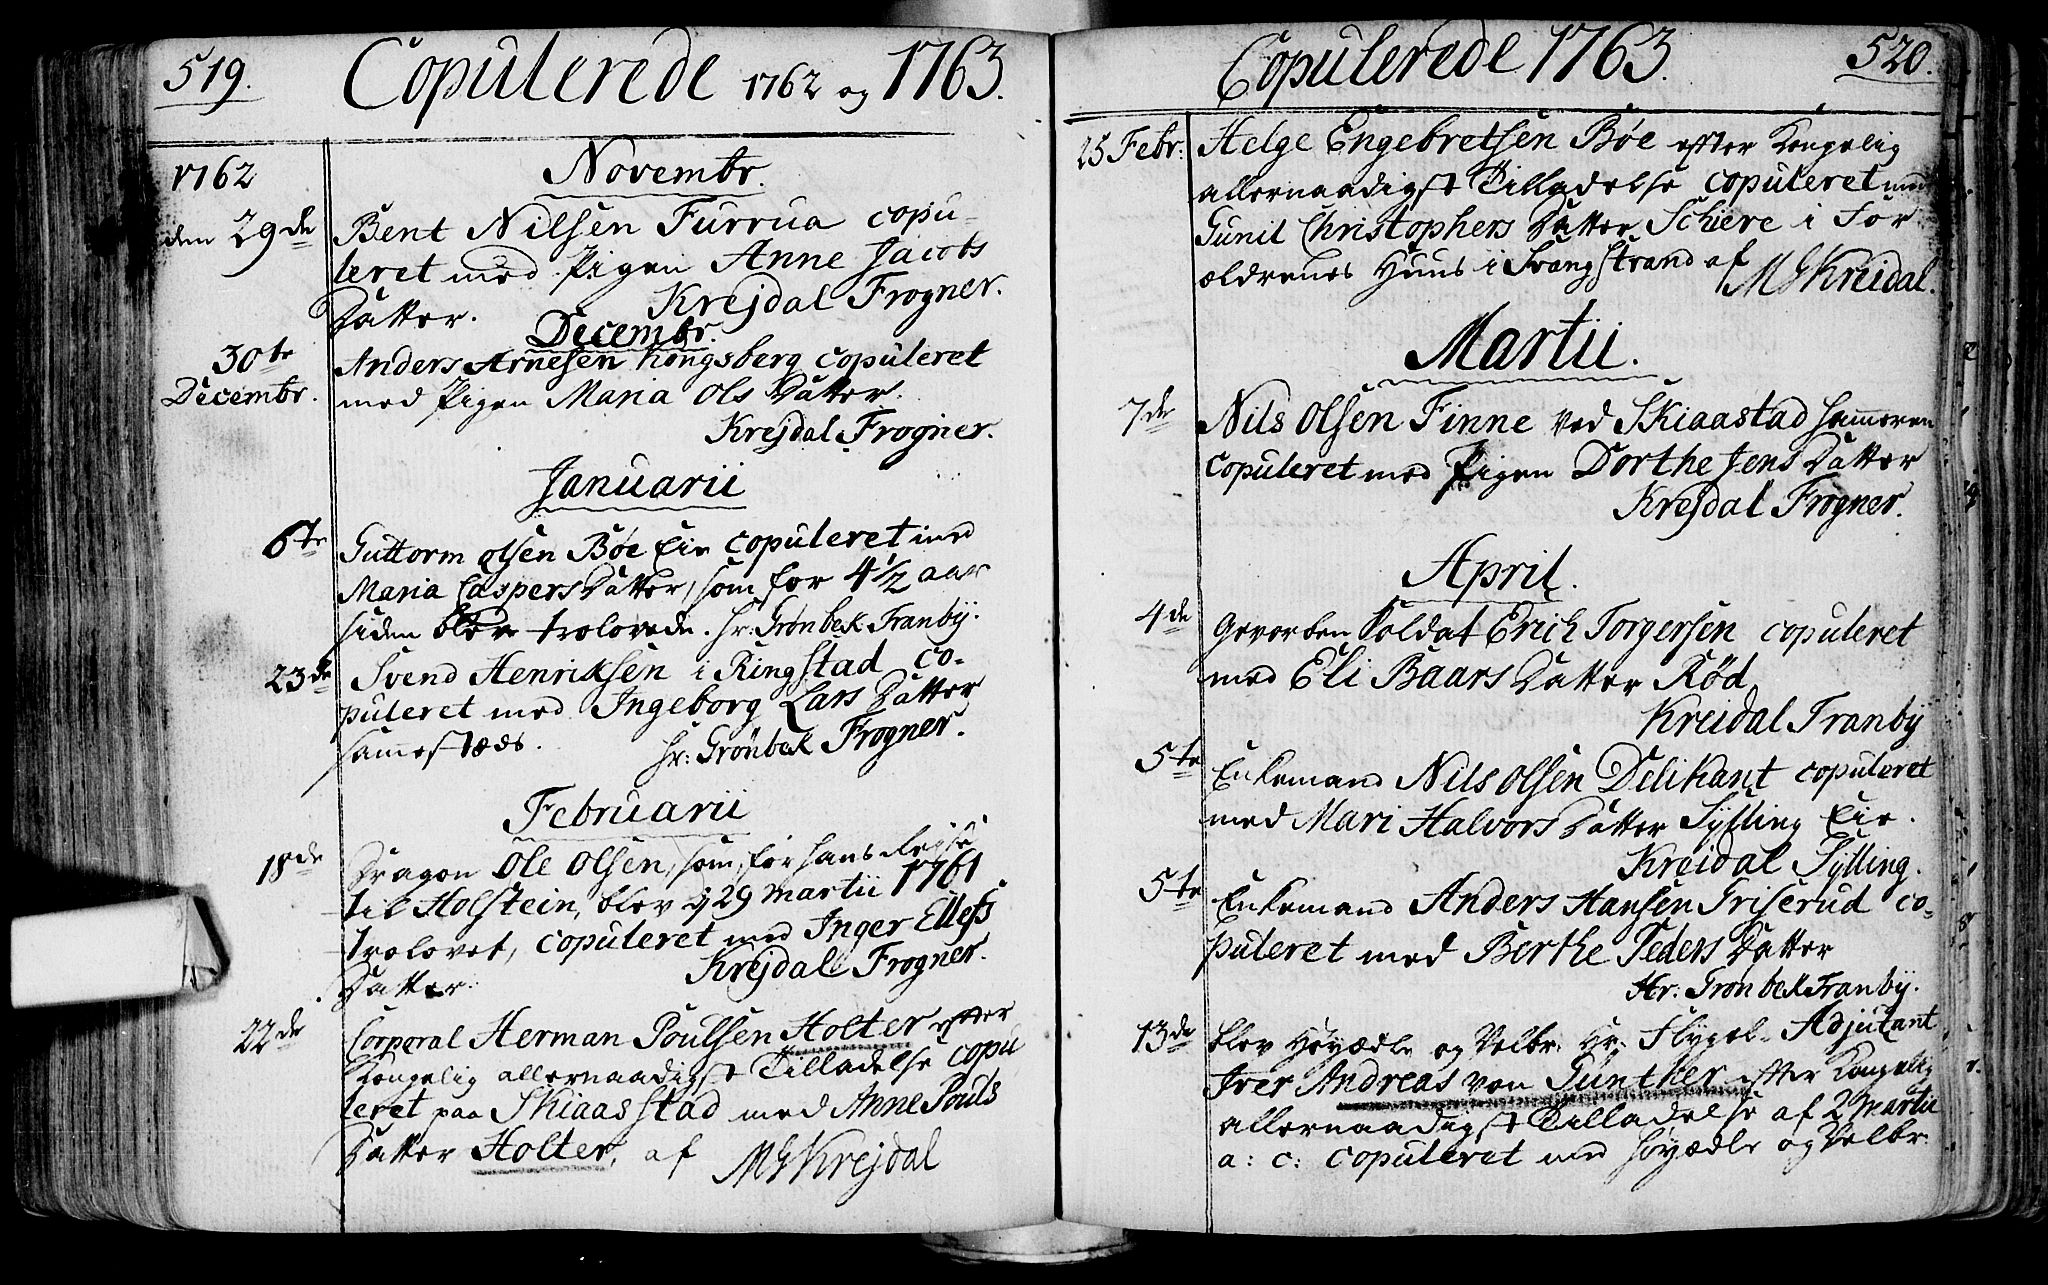 519.
Copulerede 1762 og 1763.
1762
Novembr.
den 29de
Bent Nilsen Furrua copu-
leret med Pigen Anne Jacobs
Datter. Krejdal Frogner.
Decembr.
30te
Decembr.
Anders Arnesen Kongsberg copuleret
med Pigen Maria Ols Datter.
Krejdal Frogner.
Januarii
6te
Guttorm Olsen Bøe Eie copuleret med
Maria CaspersDatter, som for 4 1/2 aar
siden blev trolovede. Hr: Grønbek Tranby.
23de
Svend Henriksen i Ringstad co-
puleret med Ingeborg Lars Datter
sammestæds. Hr: Grønbek Frogner.
Februarii
18de
Dragon Ole Olsen, som, før hans Rejse
til Holstein, blev d 29 Martii 1761
trolovet, copuleret med Inger Ellefs
Datter. Krejdal Frogner.
22de
Corporal Herman Poulsen Holter efter
Kongelig allernaadigst Tilladelse copu
leret paa Skiaasstad med Anne Pouls
Datter Holter, af MG Krejdal
Copulerede 1763.
520.
25 Febr:
Helge Engebretsen Bøe efter Kongelig
allernaadigst Tilladelse copuleret med
Gunil Christophers Datter Schiere i For
ældrenes Huus i Svangstrand af
MG Kreidal.
Martii.
7de
Nils Olsen Finne ved Skiaastad Hammeren
copuleret med Pigen Dorthe Jens Datter
Krejdal Frogner.
April.
4de
Gevorben Soldat Erich Torgersen copuleret
med Eli Baars Datter Rød
Kreidal Tranby
5te
Enkemand Nils Olsen Delikant copuleret
med Mari Halvors Datter Sylling Eie.
Kreidal Sylling.
5te
Enkemand Anders Hansen Griserud co-
puleret med Berthe Peders Datter
Hr. Grønbek Tranby.
13de
blev Høyædle og Velbr: Hr: Flygel-Adjutant
Iver Andreas von Günther efter Kongelig
allernaadigst Tilladelse af 2 Martii
a: c: copuleret med Høyædle og Velbr: